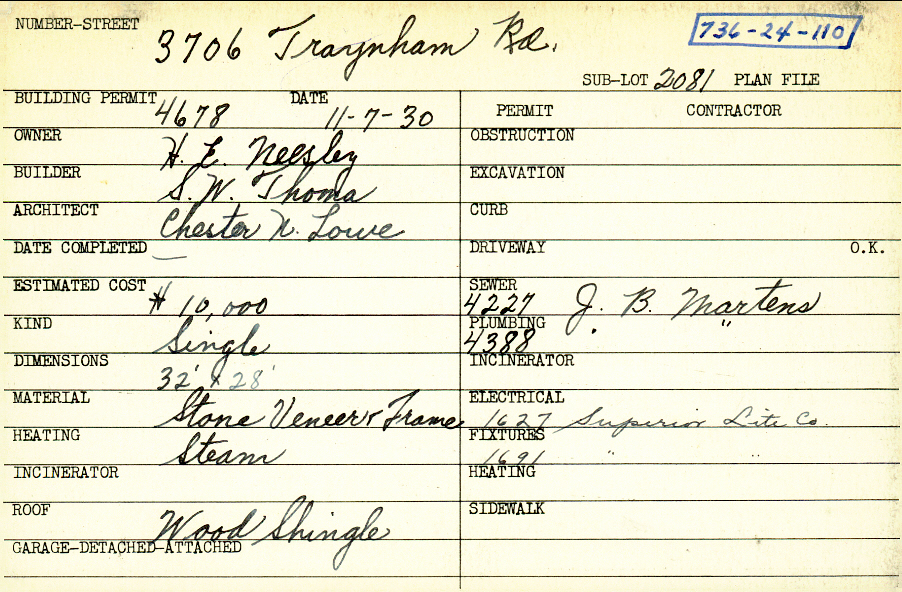 NUMBER-STREET 3706 Traynham Rd. 736-24-110
SUB-LOT 2081 PLAN FILE
BUILDING PERMIT 4678 DATE 11-7-30
OWNER H. E. Neesley
BUILDER S. W. Thoma
ARCHITECT Chester N. Lowe
DATE COMPLETED —
ESTIMATED COST $ 10,000
KIND Single
DIMENSIONS 32' x 28'
MATERIAL Stone Veneer & Frame
HEATING Steam
INCINERATOR
ROOF Wood Shingle
GARAGE-DETACHED-ATTACHED
PERMIT CONTRACTOR
OBSTRUCTION
EXCAVATION
CURB
DRIVEWAY O.K.
SEWER 4227 J. B. Martens
PLUMBING 4388 " "
INCINERATOR
ELECTRICAL 1627 Superior Lite Co.
FIXTURES 1691 " "
HEATING
SIDEWALK